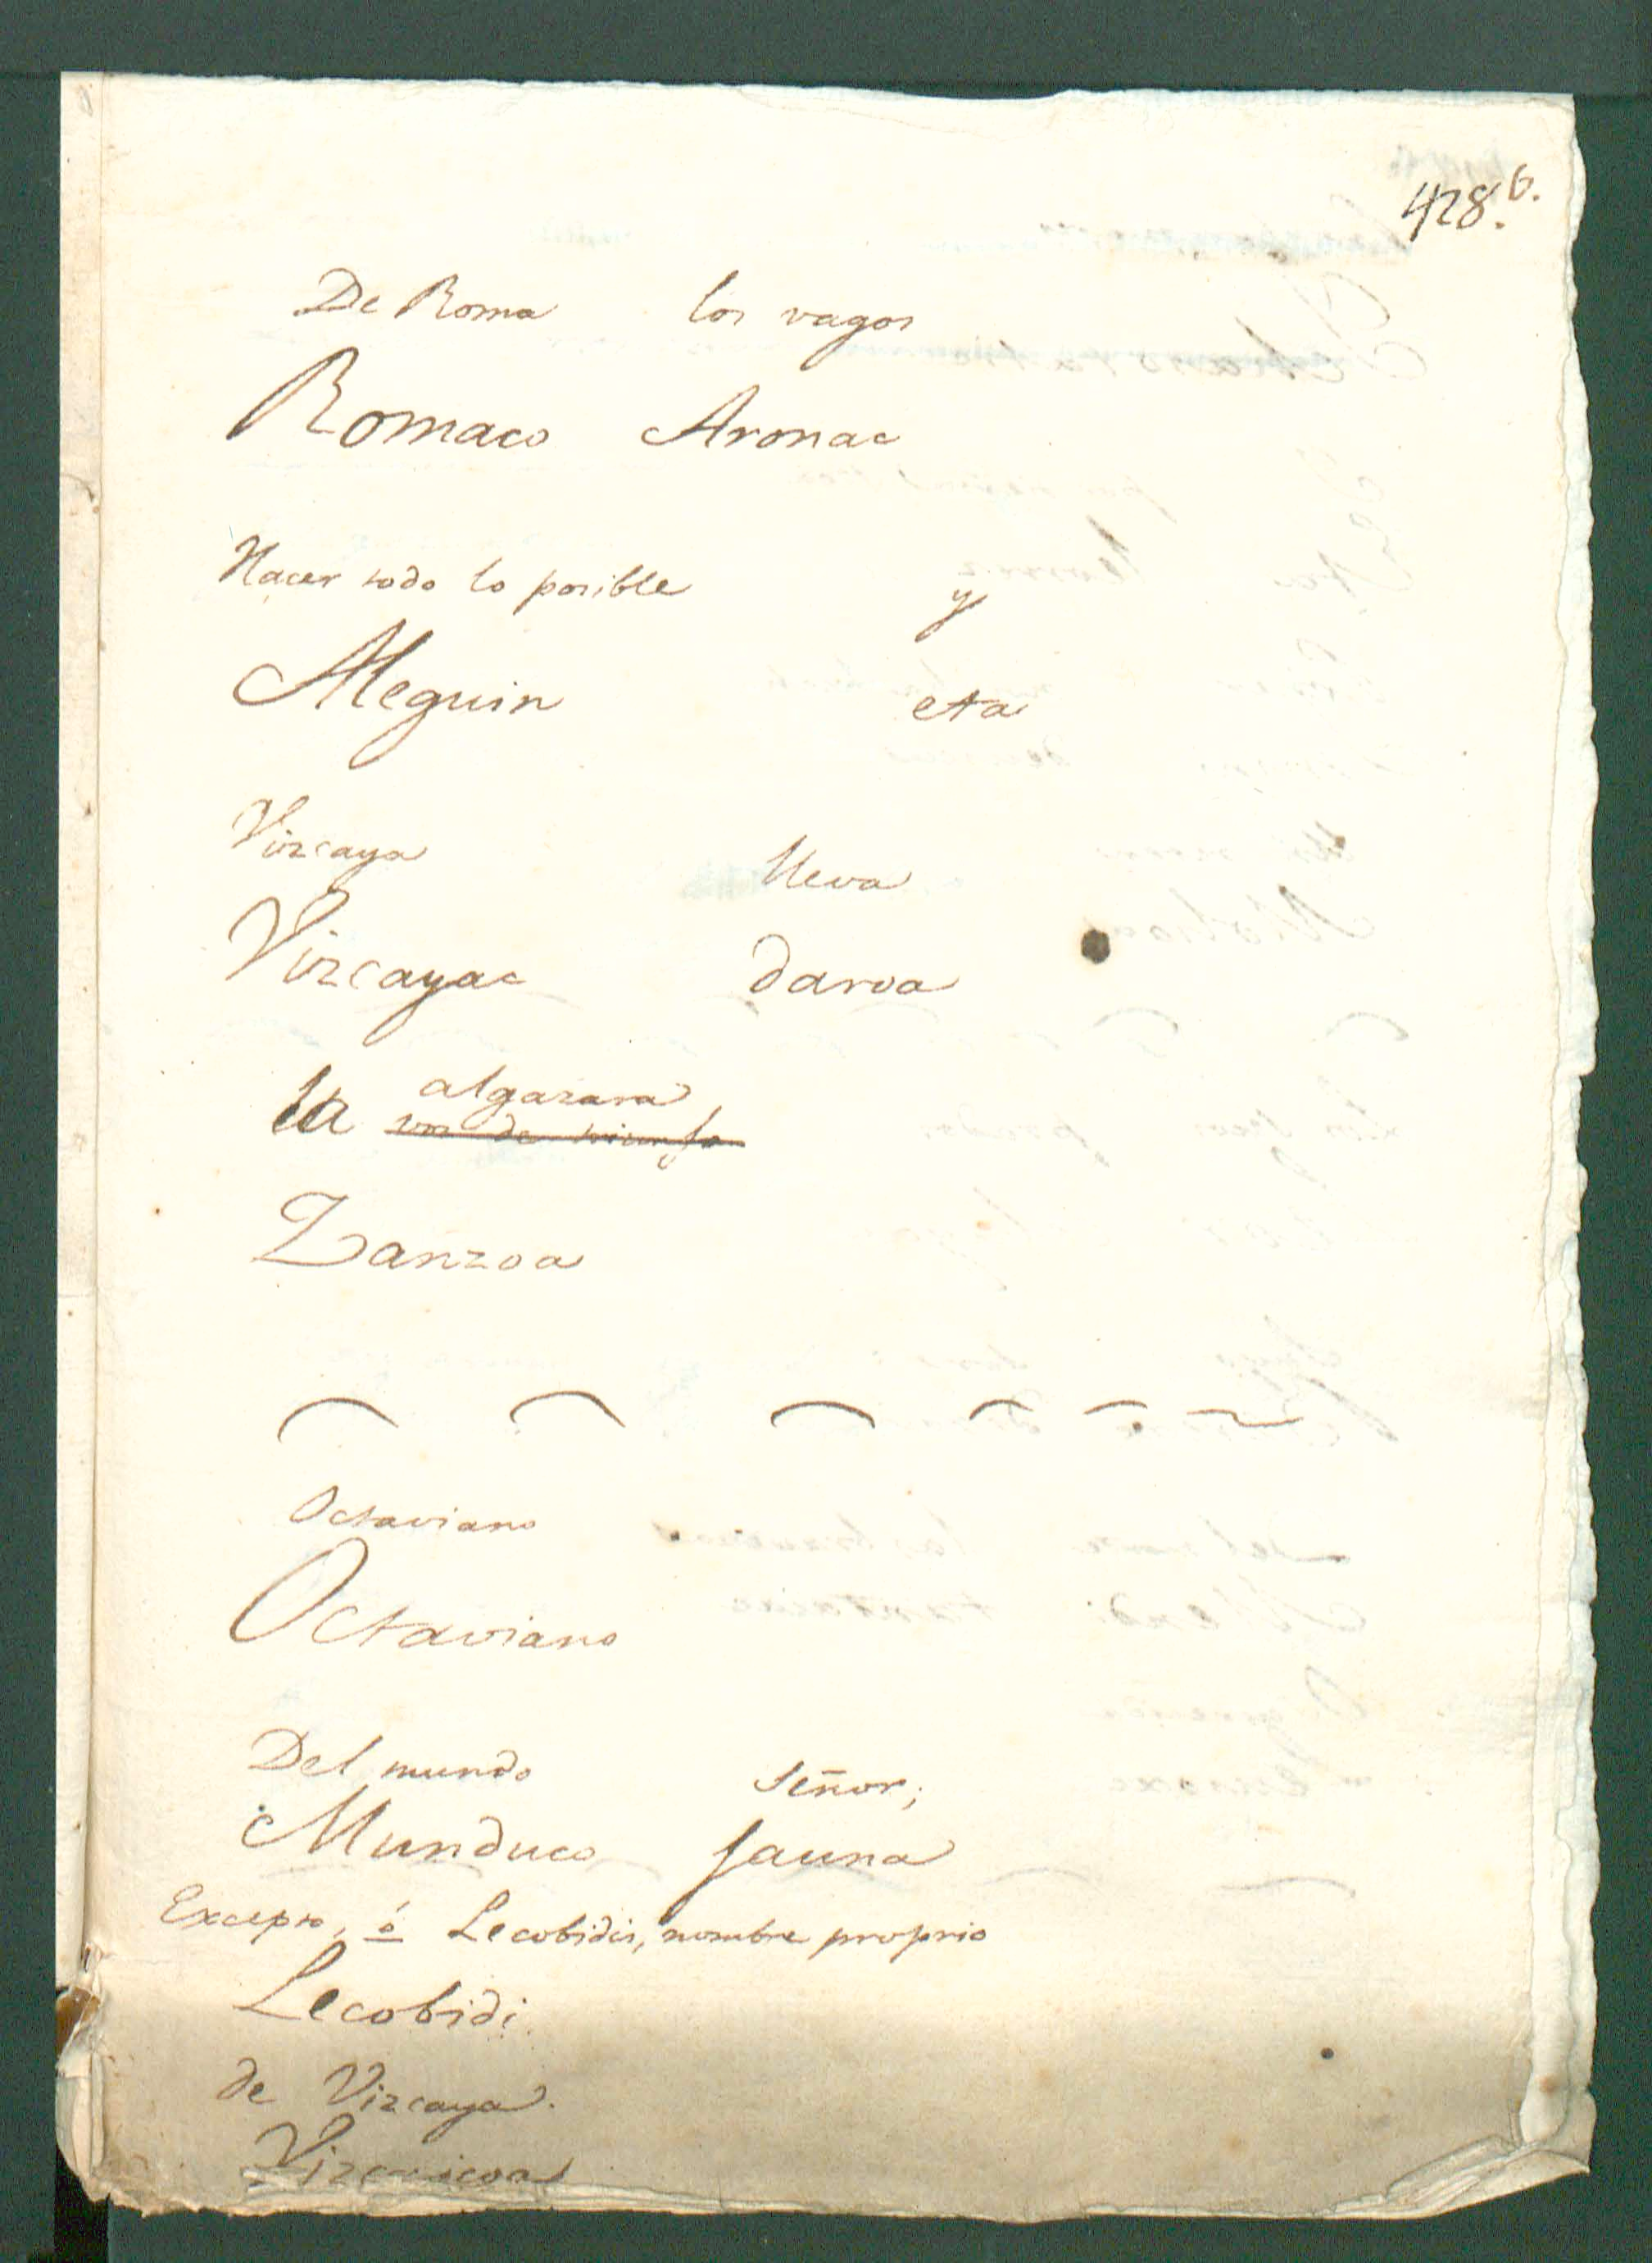 428.6.
De Roma los vagos
Romaco Aronac
Hacer todo lo posible y
Aleguin eta
Vizcaya lleva
Vizcayac daroa
algazara
la voz de triunfo
Zanzoa
Octaviano
Octaviano
Del mundo Señor;
Munduco Jauna
Excepto, ó Lecobidis, nombre proprio
Lecobidi
de Vizcaya.
Vizcaicoa